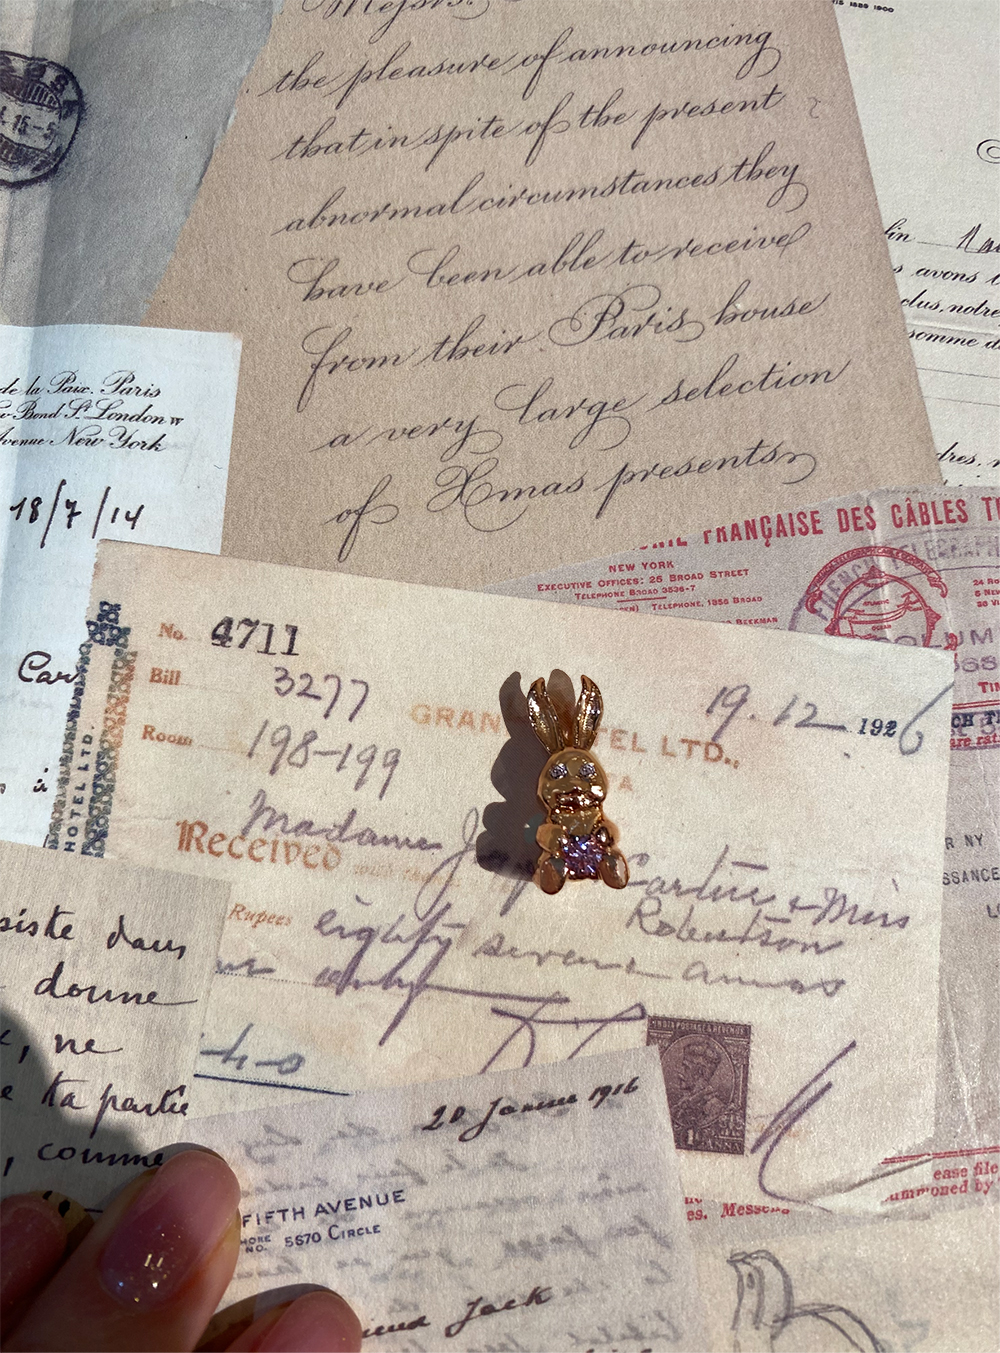 Messrs.
the pleasure of announcing
that in spite of the present
abnormal circumstances they
have been able to receive
from their Paris house
a very large selection
of Xmas presents
1889 1900
15-5
avons
clus, notre
somme de
dres,
de la Paix. Paris
Bond St. London W
Avenue New York
18/7/14
Car
à
FRANÇAISE DES CÂBLES
NEW YORK
EXECUTIVE OFFICES: 25 BROAD STREET
TELEPHONE BROAD 3536-7
TELEPHONE, 1356 BROAD
BEEKMAN
FRENCH TELEGRAPH
ATLANTIC
OCEAN
No. 4711
Bill 3277
Room 198-199
19.12 1926
GRAN TEL LTD.,
A
HOTEL LTD.
Madame J Cartier & Miss
Received
Robertson
Rupees eighty seven annas
only
4-0
INDIA POSTAGE & REVENUE
1
R NY
SSANCE
siste dans
donne
, ne
ta partie
, comme
20 Janvier 1916
FIFTH AVENUE
NO. 5670 CIRCLE
Jack
ease file
ummoned by
es. Messeng